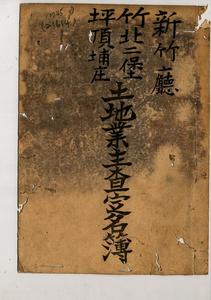 新竹廳
竹北二堡
坪頂埔庄
土地業主查定名簿